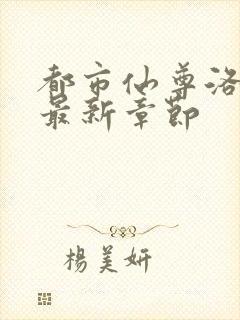 都市仙尊洛
最新章節
楊美妍